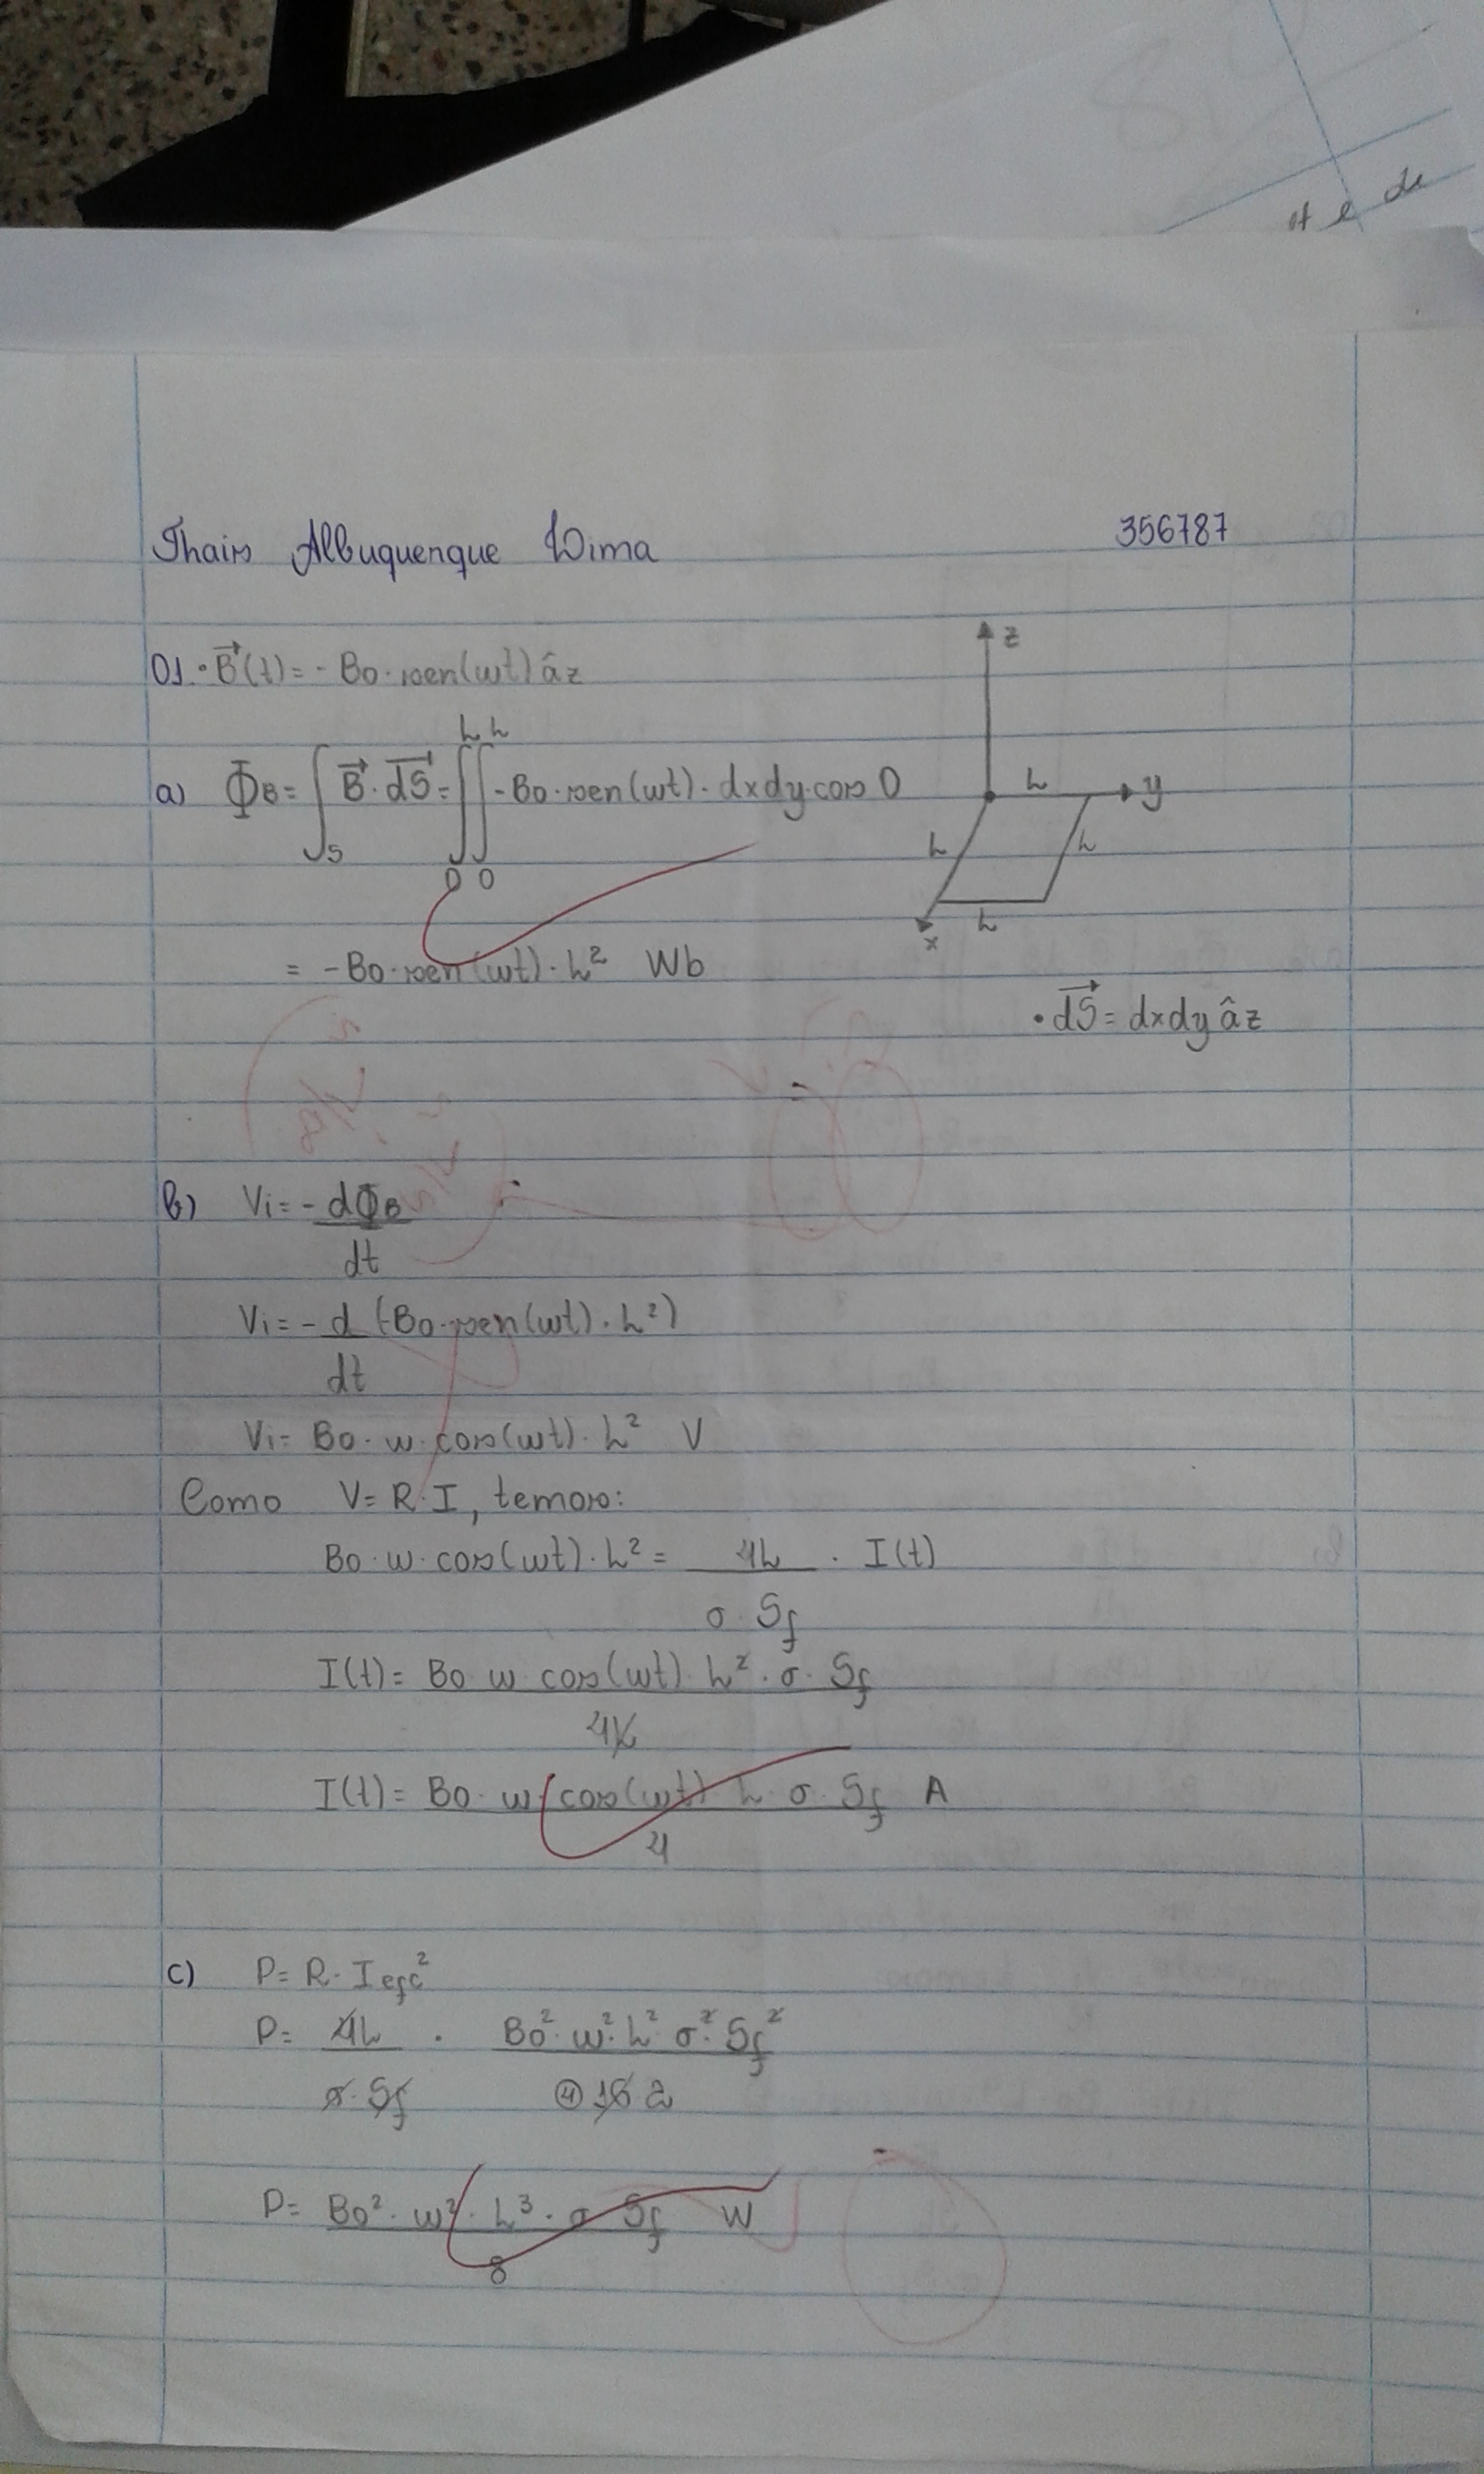 et e de
Thais Albuquerque Lima 356787
01. • B⃗(t) = - Bo · sen(wt) âz
z
a) ΦB = ∫S B⃗ · dS⃗ = ∫0^L ∫0^L -Bo · sen(wt) · dxdy · cos 0
L y
L L
L
x
= -Bo · sen(wt) · L² Wb
• dS⃗ = dxdy âz
b) Vi = - dΦB/dt
Vi = - d/dt (-Bo · sen(wt) · L²)
Vi = Bo · w · cos(wt) · L² V
Como V = R · I, temos:
Bo · w · cos(wt) · L² = 4L/(σ · Sf) · I(t)
I(t) = Bo · w · cos(wt) · L² · σ · Sf / 4L
I(t) = Bo · w · cos(wt) · L · σ · Sf / 4 A
c) P = R · Iefc²
P = 4L/(σ · Sf) · Bo² · w² · L² · σ² · Sf² / ④ 16 2
P = Bo² · w² · L³ · σ · Sf / 8 W